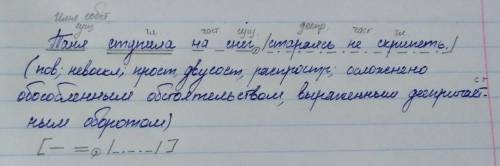 Имя собст.
сущ. гл. част сущ. деепр. част гл.
Таня ступила на снег, |стараясь не скрипеть.|
(пов; невоскл; прост, двусост, распростр; осложнено
обособленным обстоятельством, выраженным деепричаст-
ным оборотом)
[— =, |_._._|]